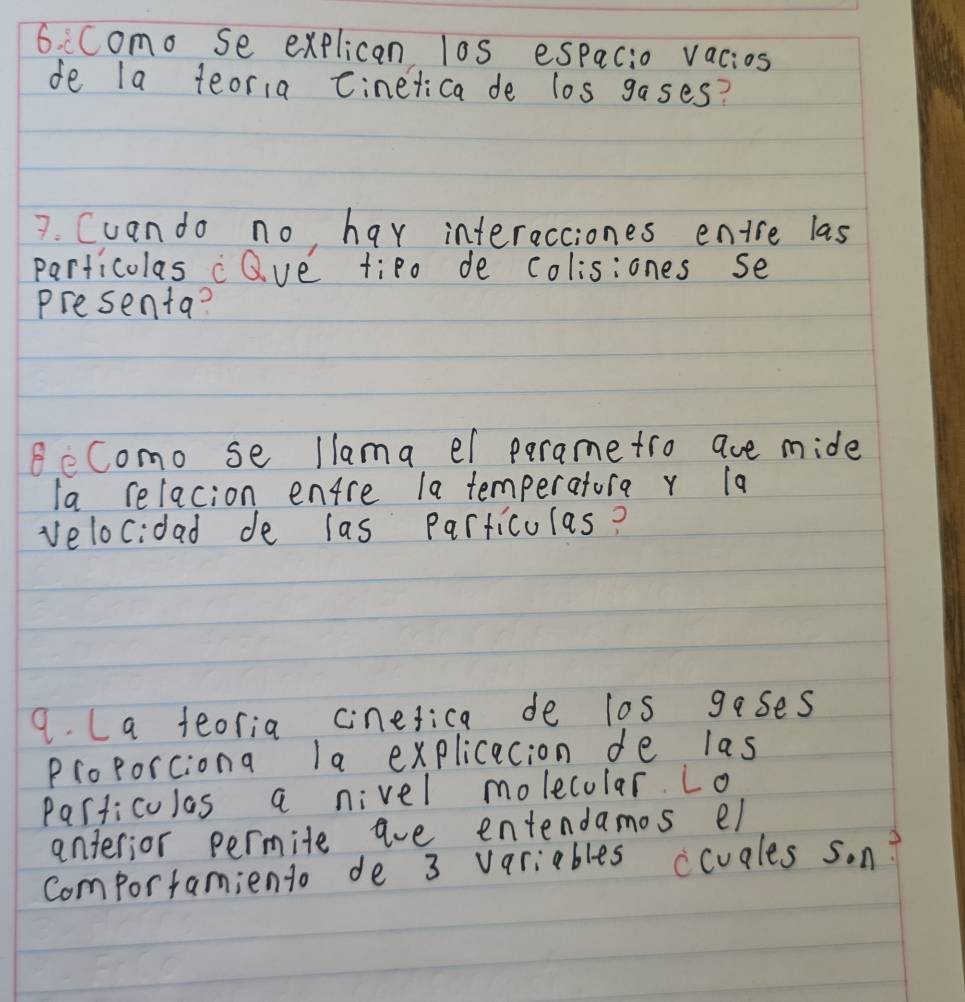 6.¿Como se explican los espacio vacios
de la teoria cinética de los gases?
7. Cuando no hay interacciones entre las
particulas ¿Qué tipo de colisiones se
presenta?
8 ¿Como se llama el parametro que mide
la relacion entre la temperatura y la
velocidad de las particulas?
9. La teoria cinetica de los gases
proporciona la explicacion de las
particulas a nivel molecular. Lo
anterior permite que entendamos el
comportamiento de 3 variables ¿cuales son?